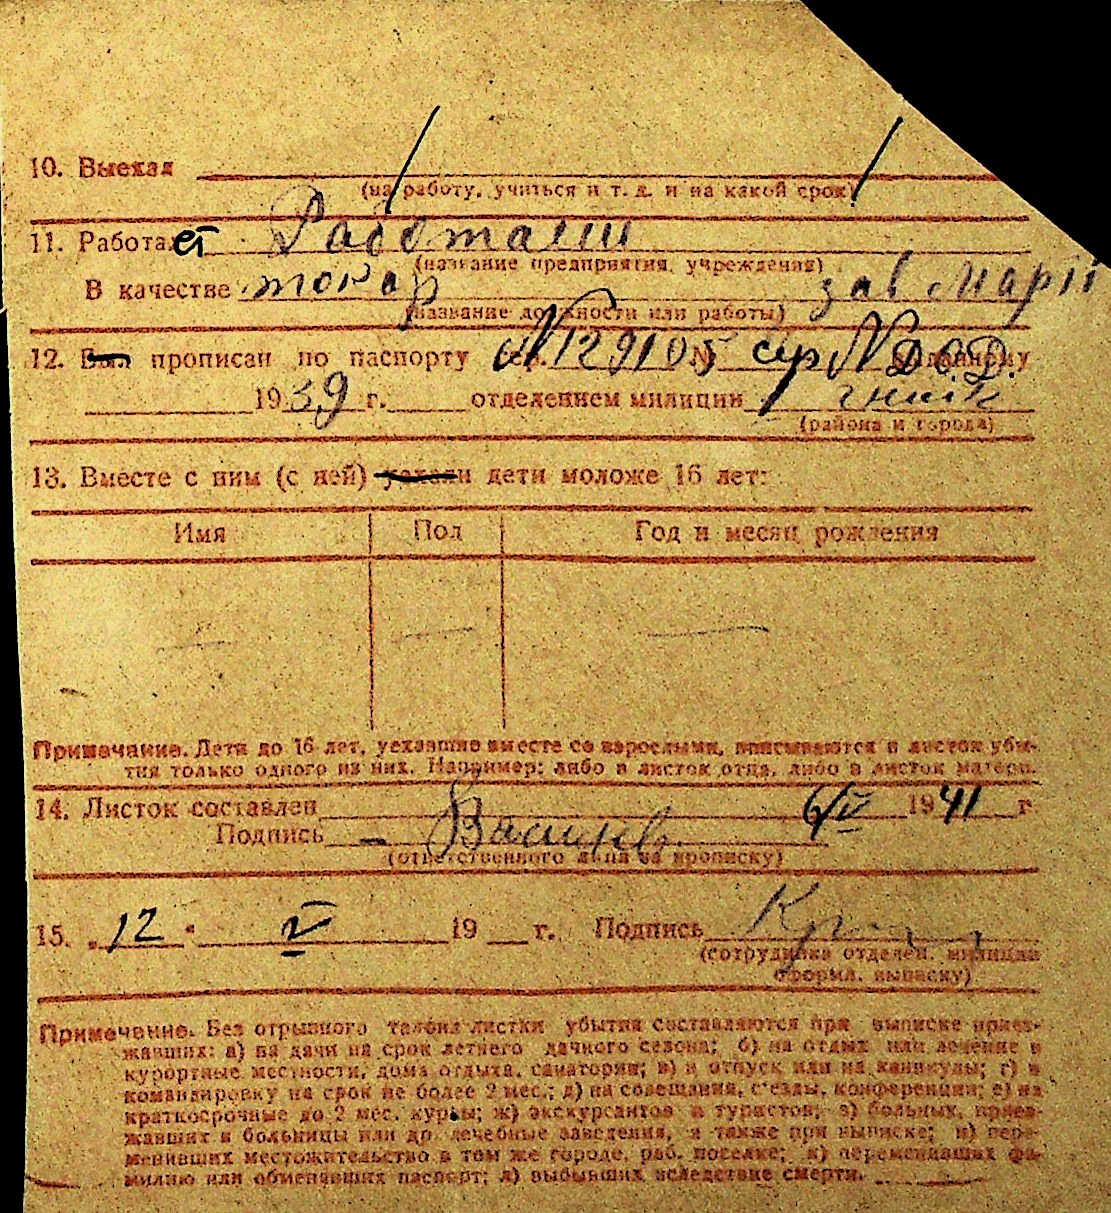 10. Выехал
(на работу, учиться и т. д. и на какой срок)
11. Работает Работаш
(название предприятия, учреждения)
В качестве токар зав Марті
(название должности или работы)
12. Был прописан по паспорту N129105 сер N Д.О.Д. выданному
1939 г. отделением милиции
(района и города)
13. Вместе с ним (с ней) уехали дети моложе 16 лет:
Имя Пол Год и месяц рождения
Примечание. Дети до 16 лет, уехавшие вместе со взрослыми, вписываются в листок убы-
тия только одного из них. Например: либо в листок отца, либо в листок матери.
14. Листок составлен 6/V 1941 г
Подпись
(ответственного лица за прописку)
15. „12 " V 19 г. Подпись
(сотрудника отделен. милиции
оформл. выписку)
Примечание. Без отрывного талона листки убытия составляются при выписке приез-
жавших: а) на дачи на срок летнего дачного сезона; б) на отдых или лечение в
курортные местности, дома отдыха, санатории; в) в отпуск или на каникулы; г) в
командировку на срок не более 2 мес.; д) на совещания, с'езды, конференции; е) на
краткосрочные до 2 мес. курсы; ж) экскурсантов и туристов; з) больных, приез-
жавших в больницы или др. лечебные заведения, а также при выписке; и) пере-
менивших местожительство в том же городе, раб. поселке; к) переменивших фа-
милию или обменявших паспорт; л) выбывших вследствие смерти.